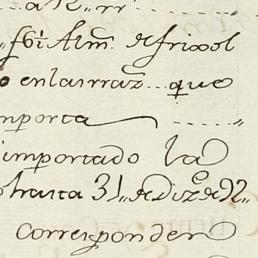 Alm.ˢ de frixol
en las rraz.ˢ que
importa
importado la
hasta 31 de Diz.ᵉ de 92
corresponden